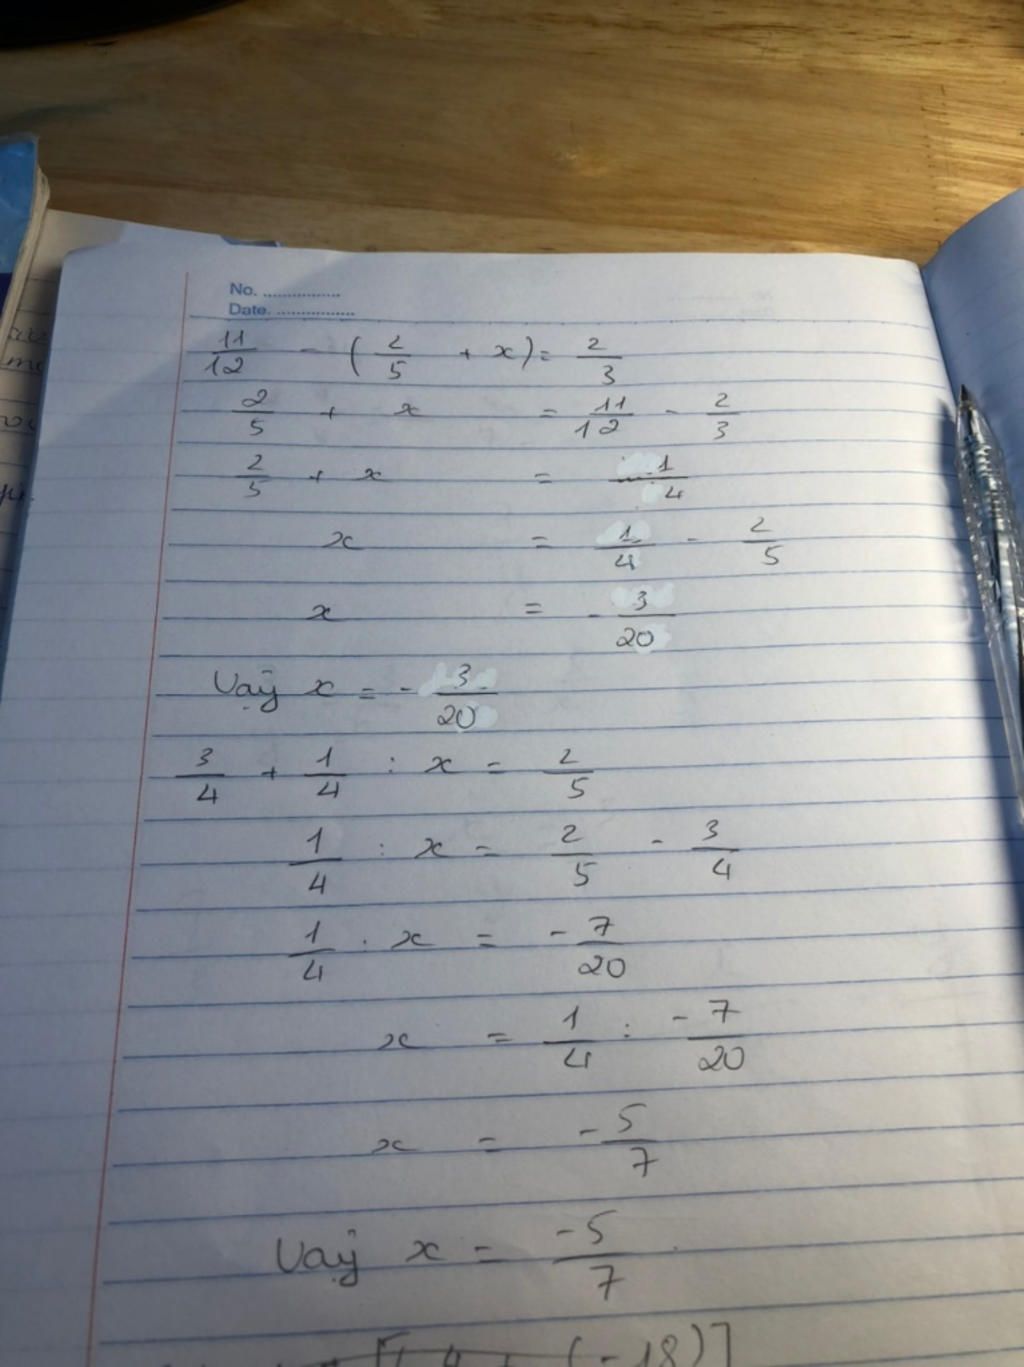 No. ................
Date. ................
11/12 - (2/5 + x) = 2/3
2/5 + x = 11/12 - 2/3
2/5 + x = 1/4
x = 1/4 - 2/5
x = - 3/20
Vaỹ x = - 3/20
3/4 + 1/4 : x = 2/5
1/4 : x = 2/5 - 3/4
1/4 . x = - 7/20
x = 1/4 : - 7/20
x = - 5/7
Vaỹ x = -5/7
(-18)]